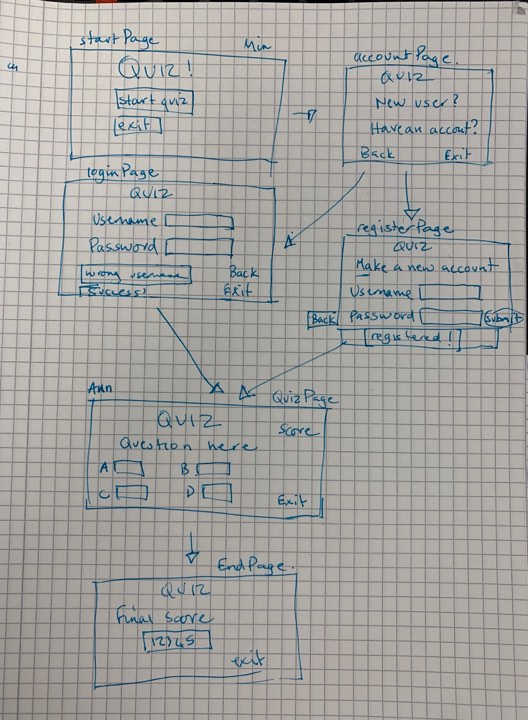 startPage
Min
QUIZ!
start quiz
exit
accountPage.
QUIZ
New user?
Have an accout?
Back Exit
loginPage
QUIZ
Username
Password
wrong username
Back
Success!
Exit
registerPage
QUIZ
Make a new account
Username
Back Password Submit
registered!
QuizPage
QUIZ
Score
Question here
A B
C D
Exit
EndPage.
QUIZ
Final score
12345
exit